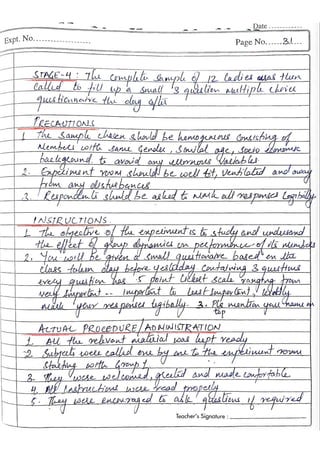 Date ............
Expt. No.....................
Page No......31...
STAGE-4 : The complete sample of 12 ladies was then
called to fill up a small 3 question multiple choice
questionnaire the day after
PRECAUTIONS
1. The sample chosen should be homogenous consisting of
Members with same gender, similar age, socio economic
background to avoid any extraneous variables
2. Experiment room should be well lit, ventilated and away
from any disturbances
3. Respondents should be asked to mark all responses legibly
INSTRUCTIONS
1. The objective of the experiment is to study and understand
the effect of group dynamics on performance of its members
2. You will be given a small questionaire based on the
class taken day before yesterday containing 3 questions
every question has 5 point likert scale ranging from
very Important -- Important to least Important, kindly
mark your responses legibally 3. Pls mention your name on
top
ACTUAL PROCEDURE/ADMINISTRATION
1. All the relevant material was kept ready
2. Subjects were called one by one to the experiment room
starting with Group 1
3. They were welcomed, greeted and made comfortable
4. All Instructions were read properly
5. They were encouraged to ask questions if required
Teacher's Signature :